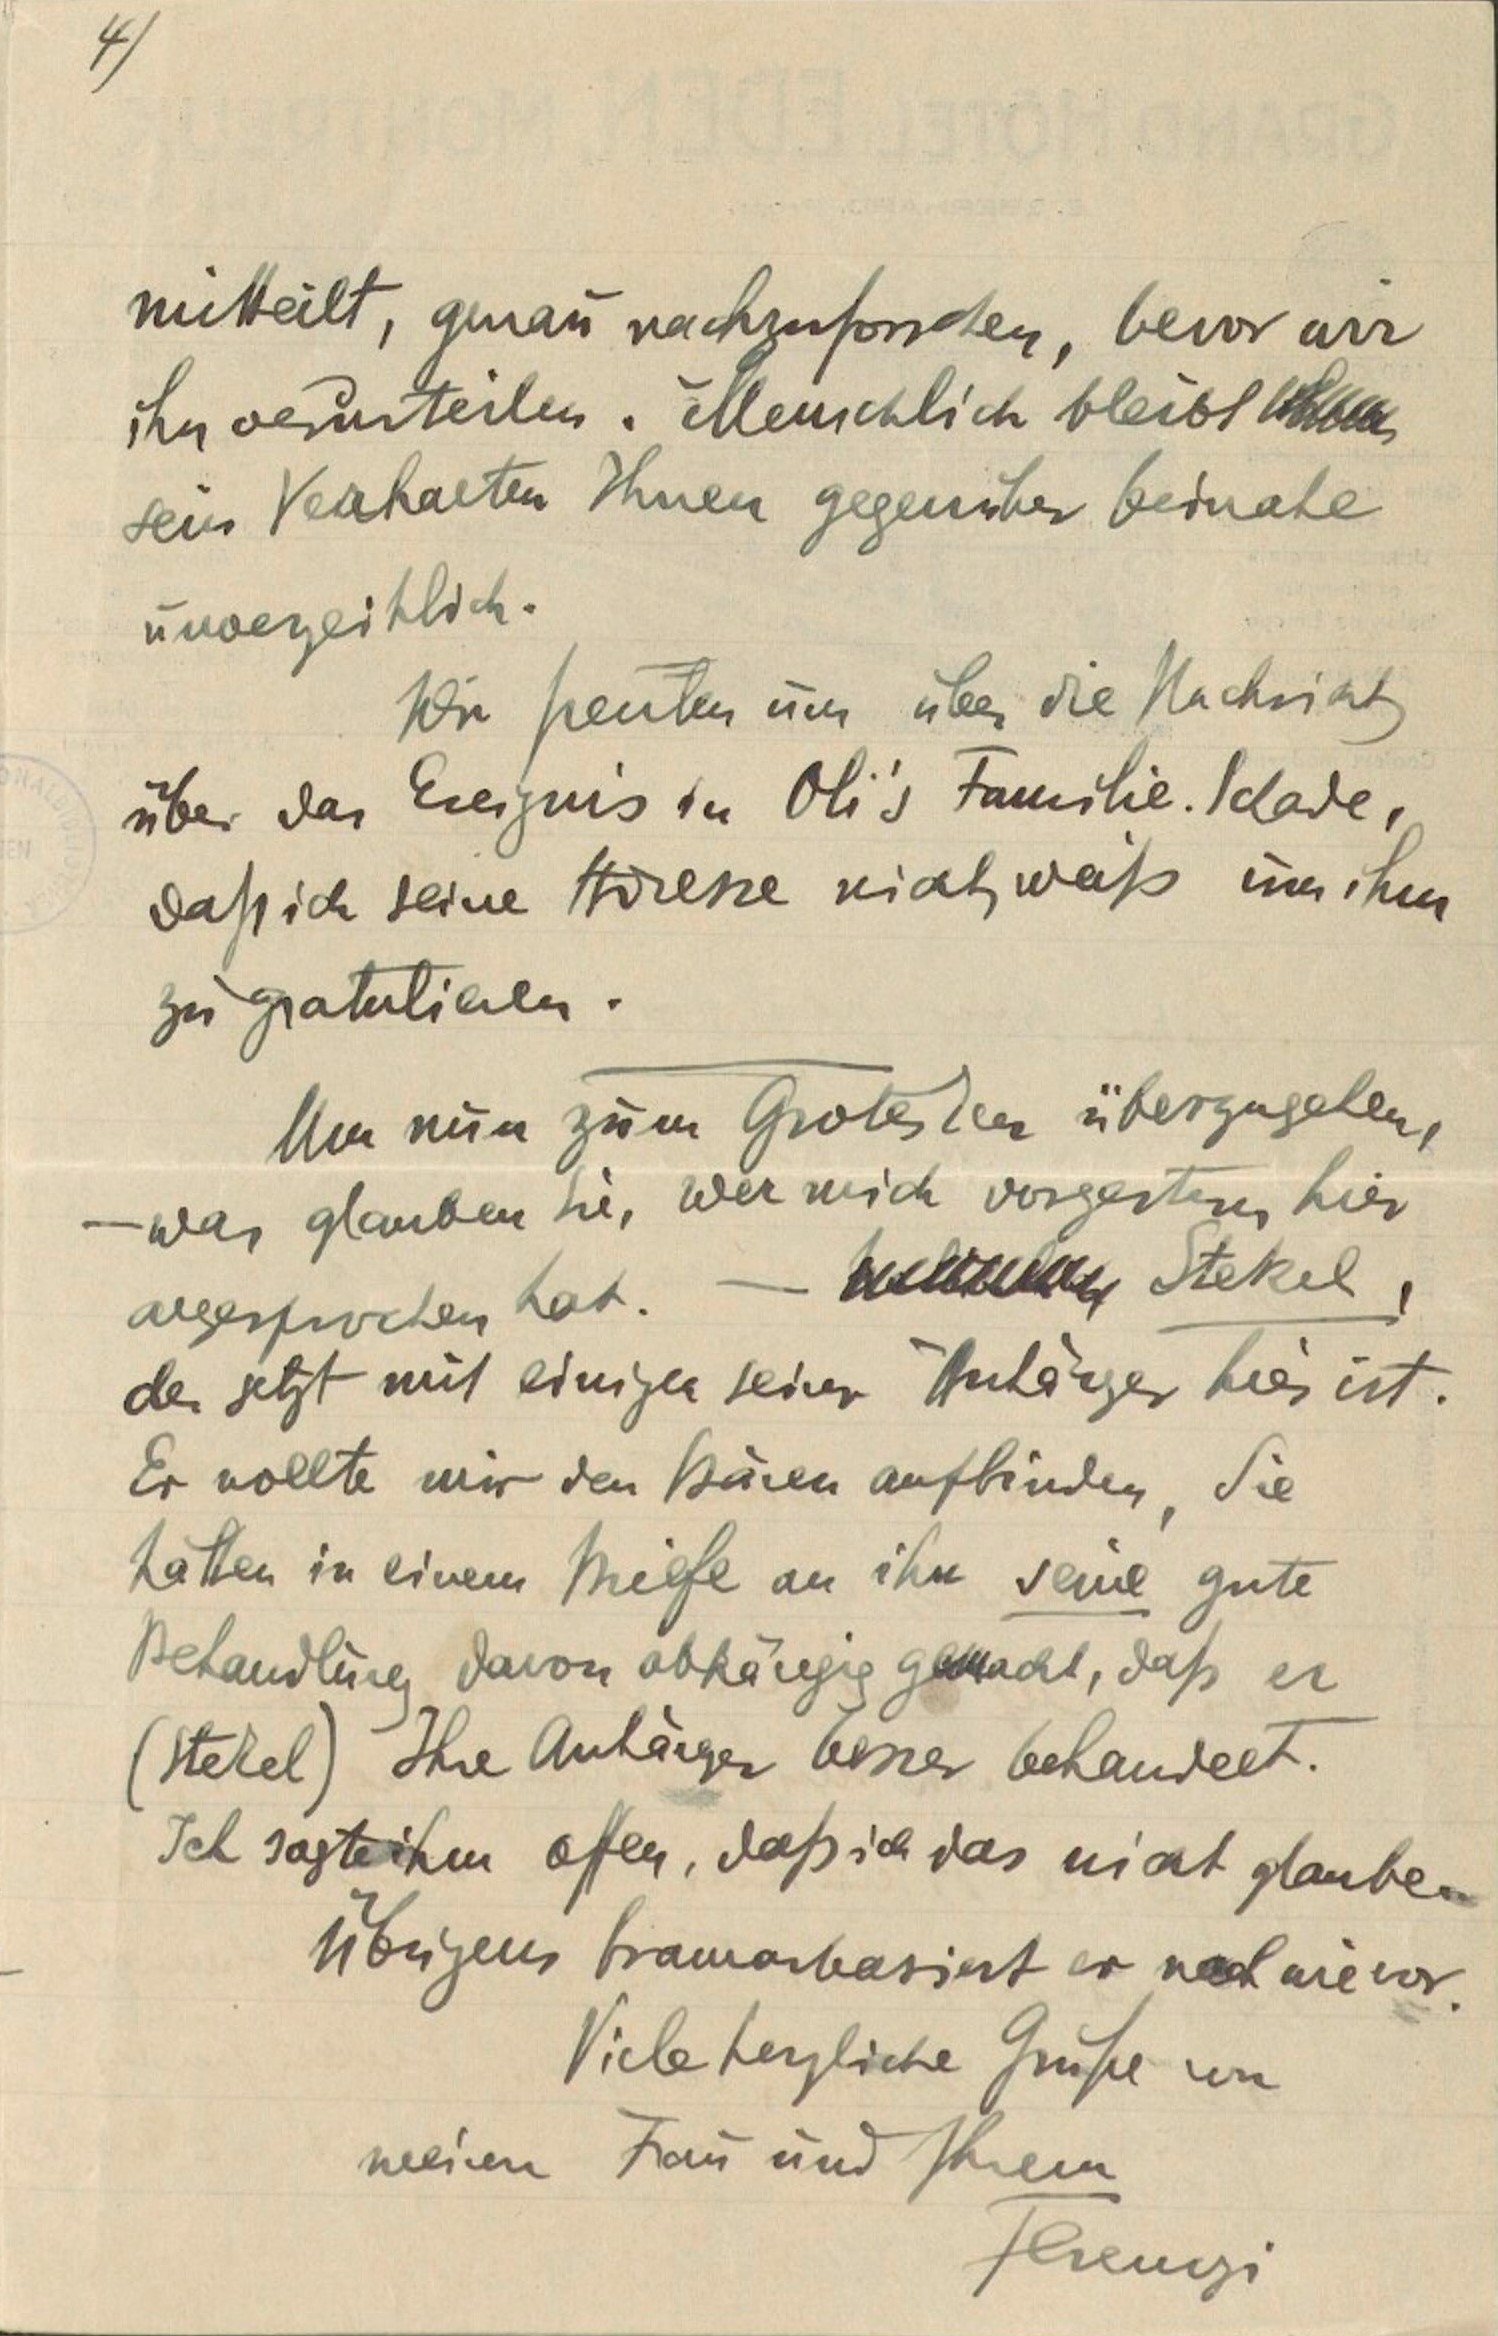 4/
mitteilt, genau nachzuforschen, bevor wir
ihn verurteilen. Menschlich bleibt
sein Verhalten Ihnen gegenüber beinahe
unverzeihlich.
Wir freuten uns über die Nachricht
über das Ereignis in Oli's Familie. Schade,
daß ich seine Adresse nicht weiß um ihm
zu gratulieren.
Um nun zum Grotesken überzugehen,
– was glauben Sie, wer mich vorgestern hier
angesprochen hat. — Stekel,
der jetzt mit einigen seiner Anhänger hier ist.
Er wollte mir den Bären aufbinden, Sie
hätten in einem Briefe an ihn seine gute
Behandlung davon abhängig gemacht, daß er
(Stekel) Ihre Anhänger besser behandelt.
Ich sagte ihm offen, daß ich das nicht glaube.
Übrigens bramarbasiert er nach wie vor.
Viele herzliche Grüße von
meiner Frau und Ihrem
Ferenczi